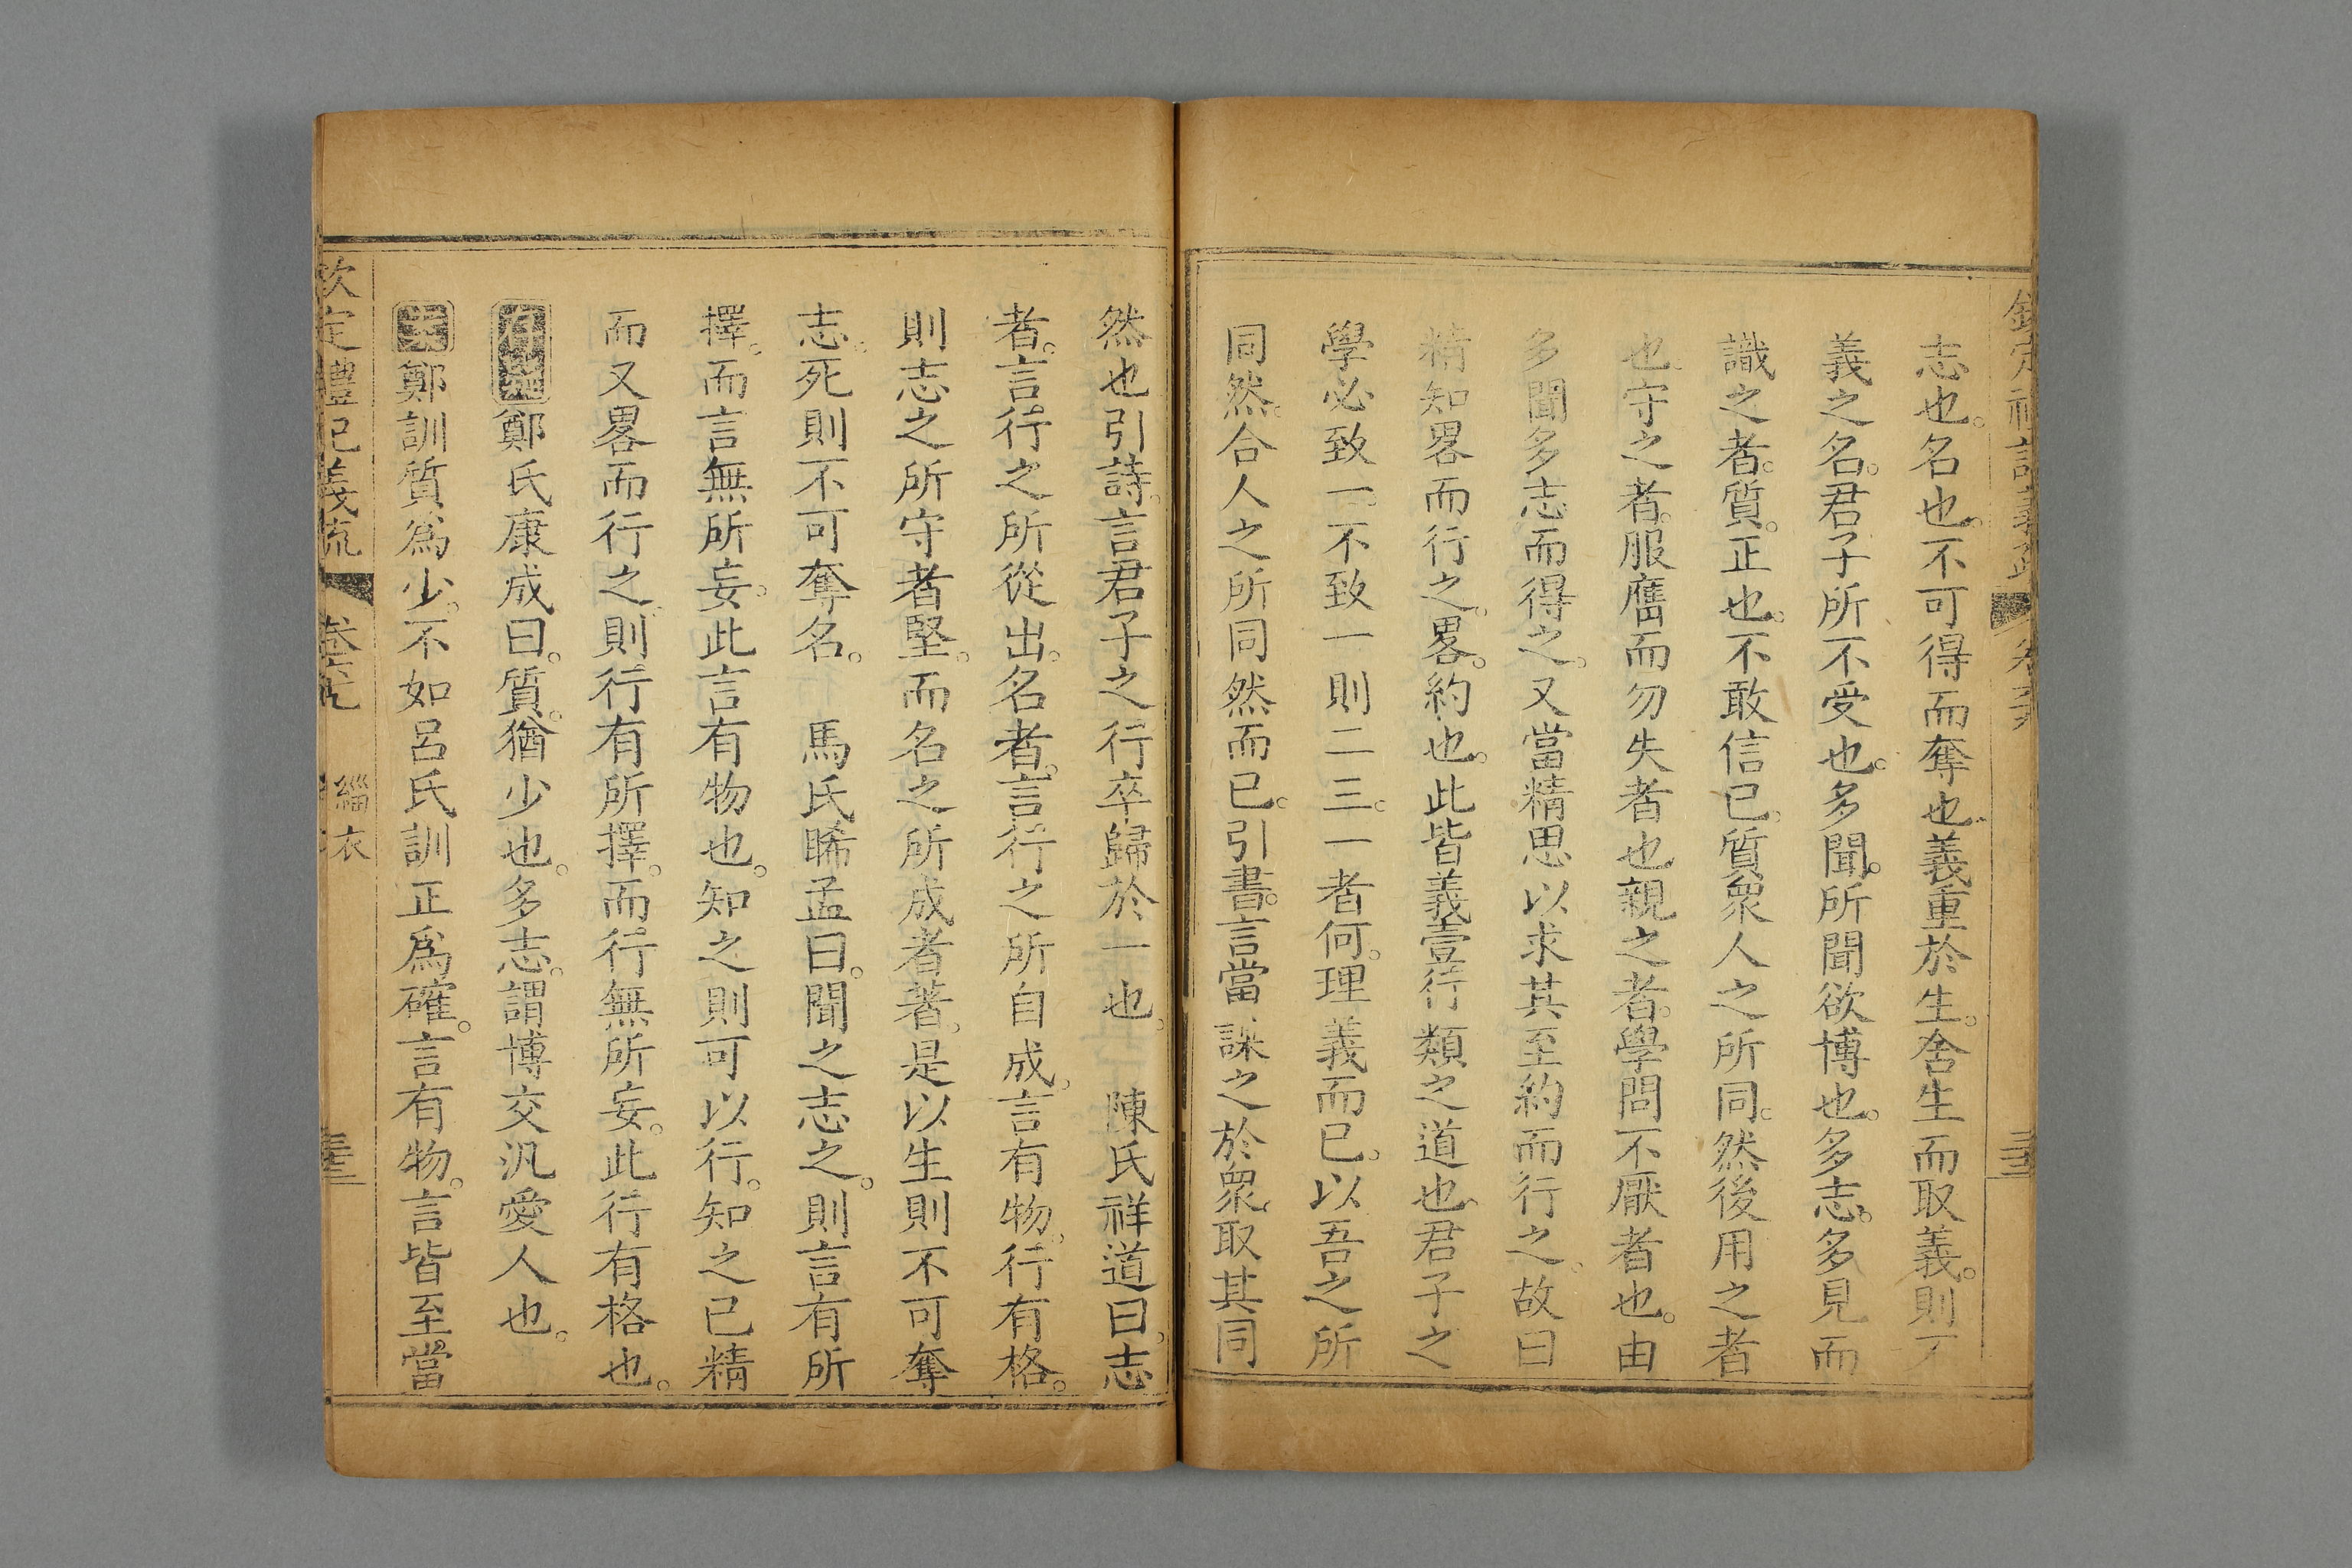 欽定禮記義疏 卷六
志也。名也。不可得而奪也。義重於生。舍生而取義。則
義之名。君子所不受也。多聞。所聞欲博也。多志。多見而
識之者。質。正也。不敢信已。質衆人之所同。然後用之者
也。守之者。服膺而勿失者也。親之者。學問不厭者也。由
多聞多志而得之。又當精思以求其至約而行之。故曰
精知畧而行之。畧。約也。此皆義壹行類之道也。君子之
學必致一。不致一則二三。一者何。理義而已。以吾之所
同然。合人之所同然而已。引書。言當謀之於衆。取其同
然也引詩。言君子之行卒歸於一也。 陳氏祥道曰。志
者。言行之所從出。名者。言行之所自成。言有物。行有格。
則志之所守者堅。而名之所成者著。是以生則不可奪
志。死則不可奪名。 馬氏晞孟曰。聞之志之。則言有所
擇。而言無所妄。此言有物也。知之則可以行。知之已精
而又畧而行之。則行有所擇。而行無所妄。此行有格也。
鄭氏康成曰。質。猶少也。多志。謂博交汎愛人也。
鄭訓質爲少。不如呂氏訓正爲確。言有物。言皆至當
欽定禮記義疏 卷六 緇衣